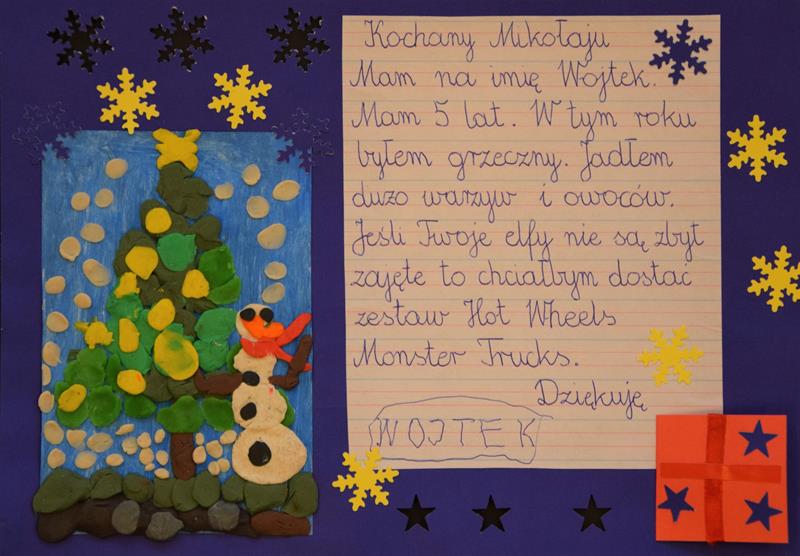 Kochany Mikołaju
Mam na imię Wojtek.
Mam 5 lat. W tym roku
byłem grzeczny. Jadłem
dużo warzyw i owoców.
Jeśli Twoje elfy nie są zbyt
zajęte to chciałbym dostać
zestaw Hot Wheels
Monster Trucks.
Dziękuję
WOJTEK